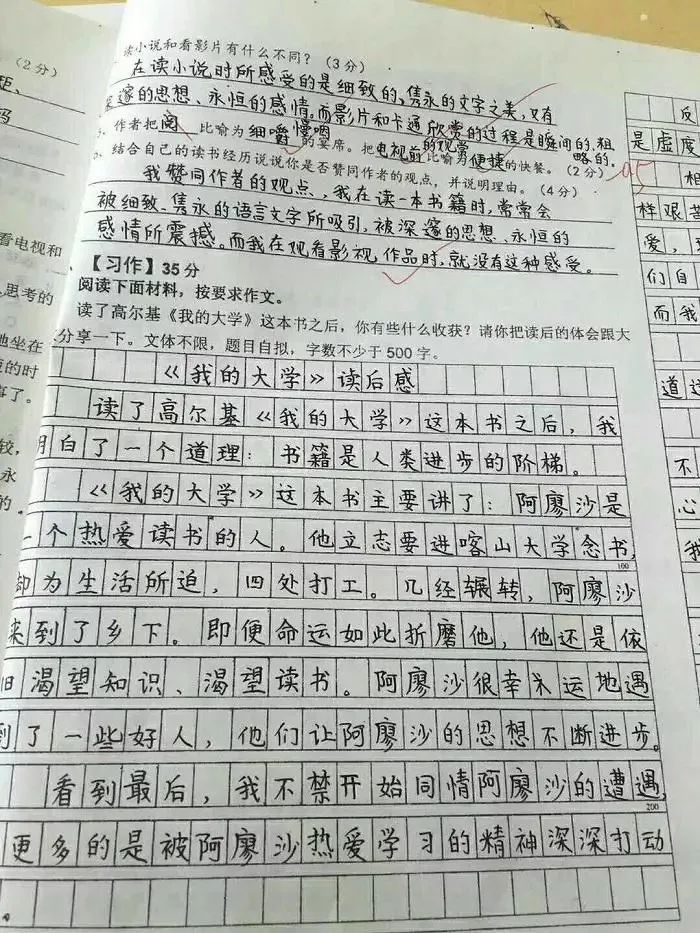 （2分）
读小说和看影片有什么不同？（3分）
在读小说时所感受的是细致的、隽永的文字之美，又有
邃的思想、永恒的感情。而影片和卡通欣赏的过程是瞬间的、粗略的。
作者把阅 比喻为细嚼慢咽的宴席。把电视前的观赏比喻为便捷的快餐。（2分）
结合自己的读书经历说说你是否赞同作者的观点，并说明理由。（4分）
我赞同作者的观点，我在读一本书籍时，常常会
被细致、隽永的语言文字所吸引，被深邃的思想、永恒的
感情所震撼。而我在观看影视作品时，就没有这种感受。
【习作】35分
阅读下面材料，按要求作文。
读了高尔基《我的大学》这本书之后，你有些什么收获？请你把读后的体会跟大
分享一下。文体不限，题目自拟，字数不少于500字。
《我的大学》读后感
读了高尔基《我的大学》这本书之后，我
明白了一个道理：书籍是人类进步的阶梯。
《我的大学》这本书主要讲了：阿廖沙是
一个热爱读书的人。他立志要进喀山大学念书，
100
却为生活所迫，四处打工。几经辗转，阿廖沙
来到了乡下。即便命运如此折磨他，他还是依
旧渴望知识、渴望读书。阿廖沙很幸运地遇
到了一些好人，他们让阿廖沙的思想不断进步。
看到最后，我不禁开始同情阿廖沙的遭遇，
200
更多的是被阿廖沙热爱学习的精神深深打动
。
看电视和
思考的
地坐在
的时
了。
较，
永
的。
反
是虚度
相
样艰苦
爱，
们自
而我
道这
不
心
我